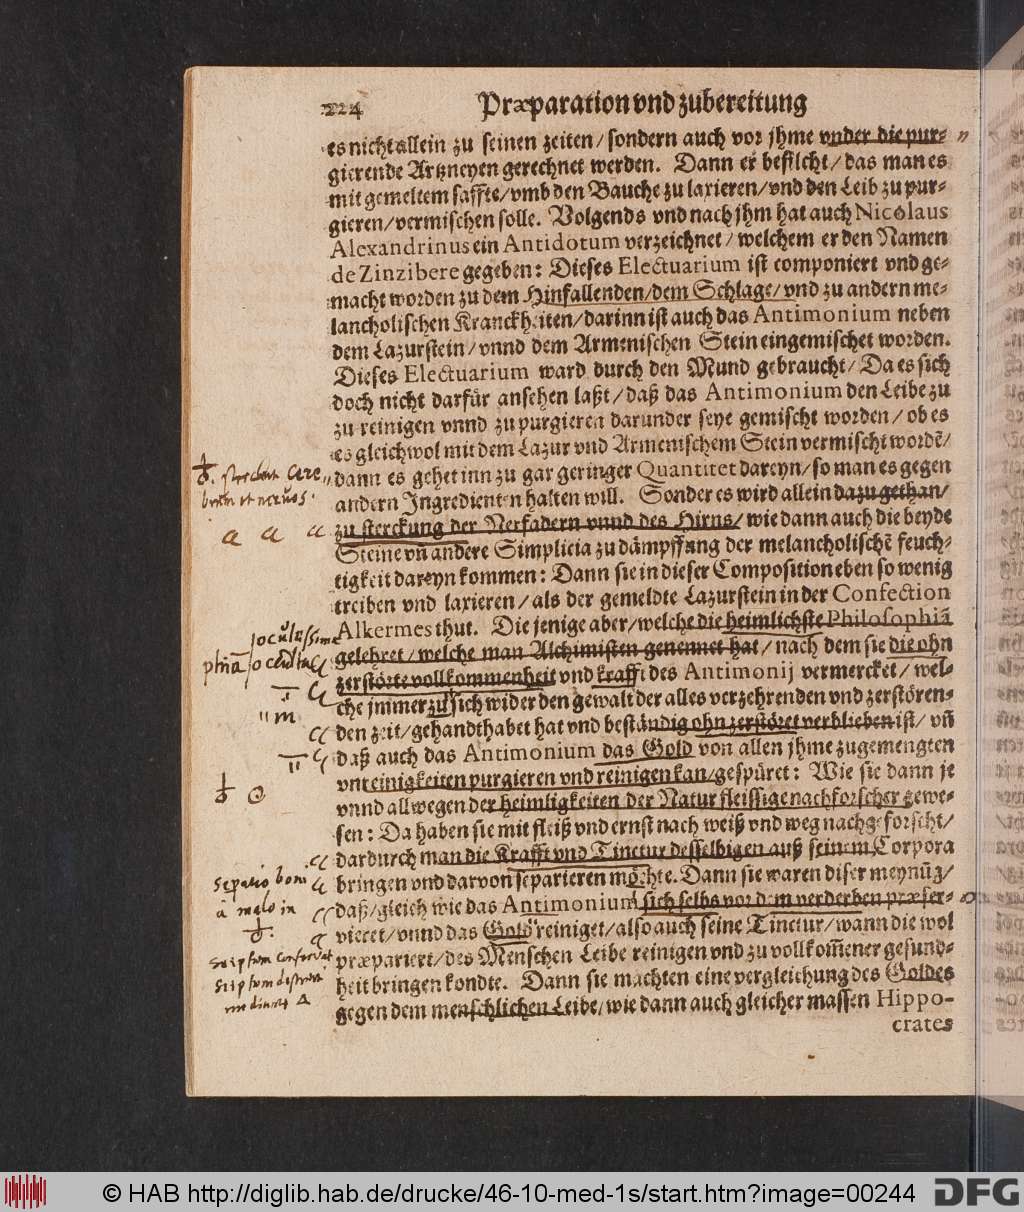 224 Præparation vnd zubereitung
es nicht allein zu seinen zeiten / sondern auch vor jhme vnder die pur-
gierende Artzneyen gerechnet werden. Dann er befilcht / das man es
mit gemeltem saffte / vmb den Bauche zu laxieren / vnd den Leib zu pur-
gieren / vermischen solle. Volgends vnd nach jhm hat auch Nicolaus
Alexandrinus ein Antidotum verzeichnet / welchem er den Namen
de Zinzibere gegeben: Dieses Electuarium ist componiert vnd ge-
macht worden zu dem Hinfallenden / dem Schlage / vnd zu andern me-
lancholischen Kranckheiten / darinn ist auch das Antimonium neben
dem Lazurstein / vnnd dem Armenischen Stein eingemischet worden.
Dieses Electuarium ward durch den Mund gebraucht / Da es sich
doch nicht darfür ansehen laßt / daß das Antimonium den Leibe zu
zu reinigen vnnd zu purgieren darunder seye gemischt worden / ob es
es gleichwol mit dem Lazur vnd Armenischem Stein vermischt wordẽ /
dann es gehet inn zu gar geringer Quantitet dareyn / so man es gegen
andern Ingredienten halten will. Sonder es wird allein dazu gethan /
zu sterckung der Nerfadern vnnd des Hirns / wie dann auch die beyde
Steine vñ andere Simplicia zu dämpffung der melancholischẽ feuch-
tigkeit dareyn kommen: Dann sie in dieser Composition eben so wenig
treiben vnd laxieren / als der gemeldte Lazurstein in der Confection
Alkermes thut. Die jenige aber / welche die heimlichste Philosophiã
gelehret / welche man Alchimisten genennet hat / nach dem sie die ohn
zerstörte vollkommenheit vnd krafft des Antimonij vermercket / wel-
che jmmer zu sich wider den gewalt der alles verzehrenden vnd zerstören-
den zeit / gehandthabet hat vnd beständig ohn zerstöret verblieben ist / vñ
daß auch das Antimonium das Gold von allen jhme zugemengten
vnreinigkeiten purgieren vnd reinigen kan / gespüret: Wie sie dann je
vnnd allwegen der heimligkeiten der Natur fleissige nachforscher gewe-
sen: Da haben sie mit fleiß vnd ernst nach weiß vnd weg nachgeforscht /
dardurch man die Krafft vnd Tinctur desselbigen auß seinem Corpora
bringen vnd darvon separieren möchte. Dann sie waren diser meynũg /
daß / gleich wie das Antimonium sich selbs vor dem verderben præser-
vieret / vnnd das Gold reiniget / also auch seine Tinctur / wann die wol
præpariert / des Menschen Leibe reinigen vnd zu vollkom̃ener gesund-
heit bringen kondte. Dann sie machten eine vergleichung des Goldes
gegen dem menschlichen Leibe / wie dann auch gleicher massen Hippo-
crates
♁. cere
brum et neruos.
a a a
♁ ☉
sepatio boni
à malo in
♁.
seipsum conservat
seipsum
© HAB http://diglib.hab.de/drucke/46-10-med-1s/start.htm?image=00244
DFG